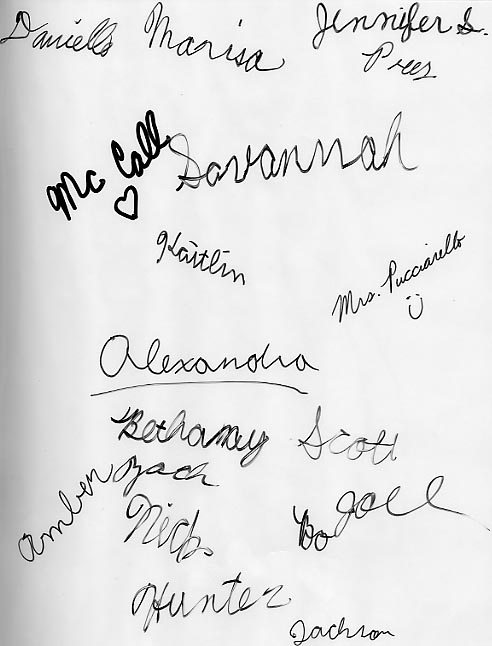 Danielle Marisa Jennifer S.
McCall Savannah
♡
Kaitlin
Mrs. Pucciarello
Alexandra
Bethany Scott
Amber Zach
Nick Bo Joel
Hunter
Jackson